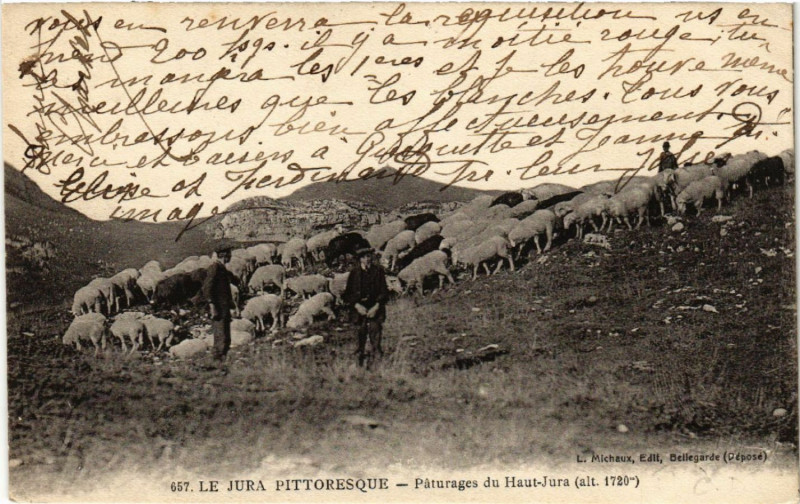 vous en renverra la requisition ns en
mené 200 kgs. il y a moitié rouge, tu
mangera les 1eres et je les trouve même
meilleures que les blanches. Tous vous
embrassons bien affectueusement.
merci et baisers à Guiguitte et Jeanne
et Ferdinand pr. leur
image
657. LE JURA PITTORESQUE — Pâturages du Haut-Jura (alt. 1720m)
L. Michaux, Edit, Bellegarde (Déposé)